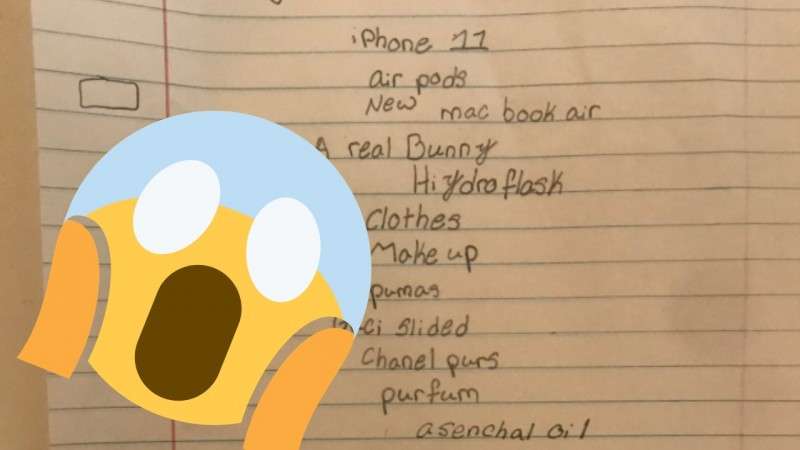 iPhone 11
air pods
New mac book air
A real Bunny
Hiydroflask
Clothes
Make up
pumas
slided
Chanel purs
purfum
asenchal oil